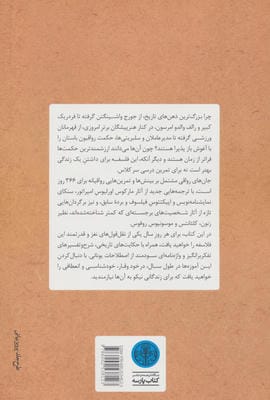 چرا بزرگ‌ترین ذهن‌های تاریخ، از جورج واشینگتن گرفته تا فردریک
کبیر و رالف والدو امرسون، در کنار هنرپیشگان برتر امروزی، از قهرمانان
ورزشی گرفته تا مدیرعاملان و سلبریتی‌ها، حکمت رواقیون باستان را
با آغوش باز پذیرا هستند؟ چون آن‌ها می‌دانند ارزشمندترین حکمت‌ها
فراتر از زمان هستند و دیگر آنکه، این فلسفه برای داشتن یک زندگی
بهتر است نه برای تمرین درسی سر کلاس.
حال‌های رواقی مشتمل بر بینش‌ها و تمرین‌هایی رواقیانه برای ۳۶۶ روز
است، با ترجمه‌هایی جدید از آثار مارکوس اورلیوس امپراتور، سنکای
نمایشنامه‌نویس و اپیکتتوس فیلسوف و بردهٔ سابق، و نیز برگردان‌هایی
تازه از آثار شخصیت‌های برجسته‌ای که کمتر شناخته‌شده‌اند، نظیر
زنون، کلئانتس و موسونیوس روفوس.
در این کتاب، برای هر روز سال یکی از نقل‌قول‌های نغز و قدرتمند این
فلاسفه را خواهید یافت، همراه با حکایت‌های تاریخی، شرح‌و‌تفسیرهای
تفکربرانگیز و واژه‌نامه‌ای سودمند از اصطلاحات یونانی. با دنبال کردن
این آموزه‌ها در طول سالیان، درخود وقار، خودشناسی و انعطافی را
خواهید یافت که برای زندگانی نیکو به آن‌ها نیازمندید.
کتاب پارسه